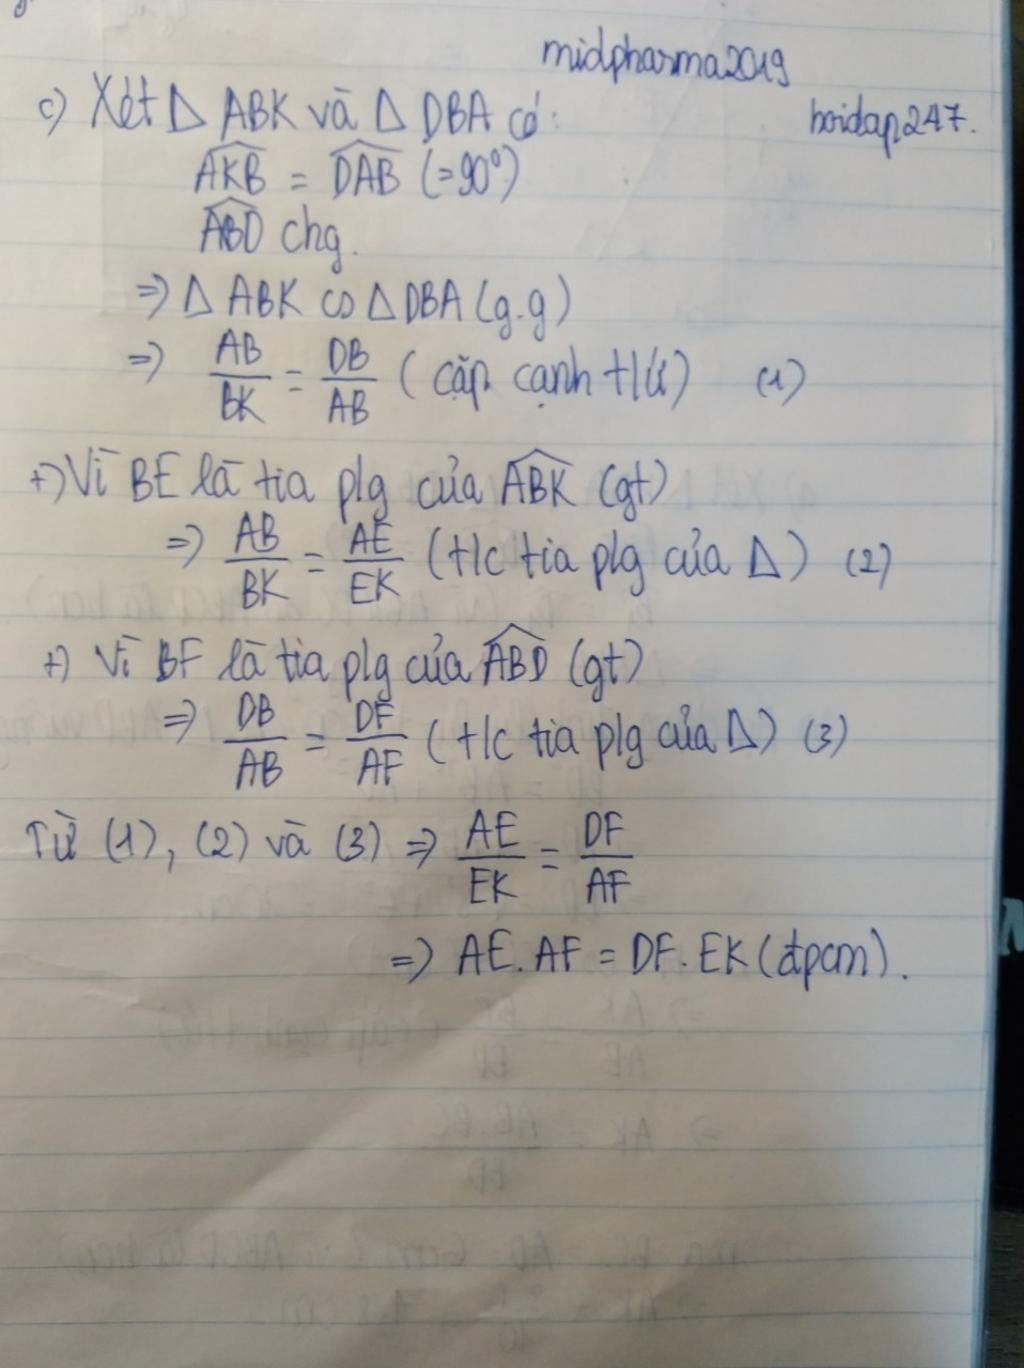 midpharma2019
hoidap247.
c) Xét Δ ABK và Δ DBA có:
\widehat{AKB} = \widehat{DAB} (=90°)
\widehat{ABD} chg.
=> Δ ABK ∽ Δ DBA (g.g)
=> AB/BK = DB/AB (cặp cạnh t/ứ) (1)
+) Vì BE là tia p/g của \widehat{ABK} (gt)
=> AB/BK = AE/EK (t/c tia p/g của Δ) (2)
+) Vì BF là tia p/g của \widehat{ABD} (gt)
=> DB/AB = DF/AF (t/c tia p/g của Δ) (3)
Từ (1), (2) và (3) => AE/EK = DF/AF
=> AE.AF = DF.EK (đpcm).